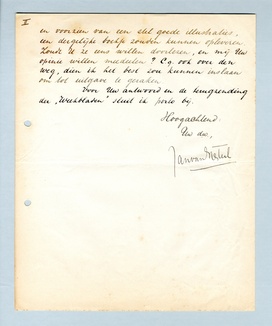 II
en voorzien van een stel goede illustraties,
een dergelijke boekje zouden kunnen opleveren.
Zoudt U ze eens willen doorlezen, en mij Uw
opinie willen meedeelen? C.q. ook over den
weg, dien ik het best zou kunnen inslaan
om tot uitgave te geraken.
Voor Uw antwoord en de terugzending
der "Werkbladen" sluit ik porto bij.
Hoogachtend.
Uw dw,